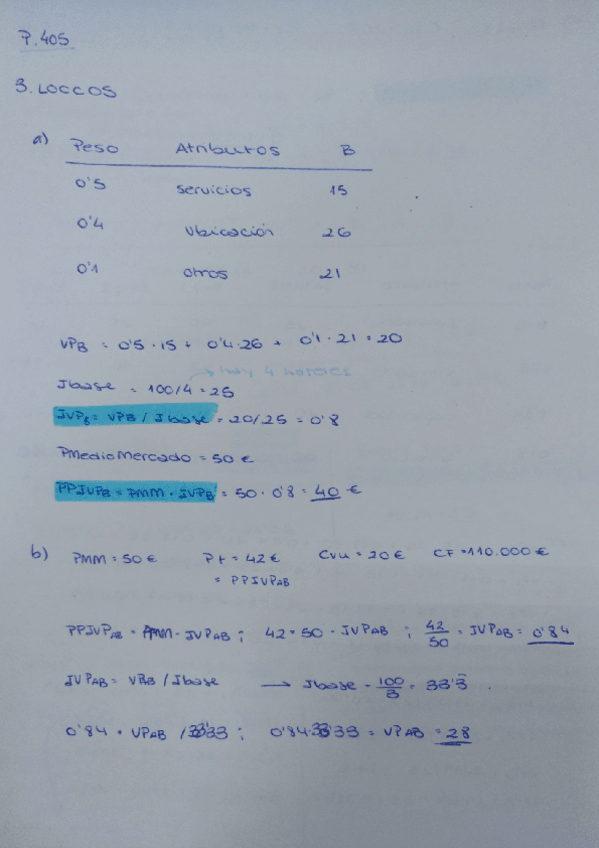 P.405
3. LOCCOS
a) Peso Atributos B
0'5 servicios 15
0'4 Ubicación 26
0'1 otros 21
VPB = 0'5 · 15 + 0'4 · 26 + 0'1 · 21 = 20
→ hay 4 hoteles
Jbase = 100/4 = 25
JVPB = VPB / Jbase = 20/25 = 0'8
PMedioMercado = 50 €
PPJVPB = PMM · JVPB = 50 · 0'8 = 40 €
b) PMM = 50 € Pt = 42 € CVu = 20 € CF = 110.000 €
= PPJVPAB
PPJVPAB = PMM · JVPAB ; 42 = 50 · JVPAB ; 42/50 = JVPAB = 0'84
JVPAB = VPAB / Jbase → Jbase = 100/3 = 33'3
0'84 = VPAB / 33'33 ; 0'84 · 33'33 = VPAB = 28